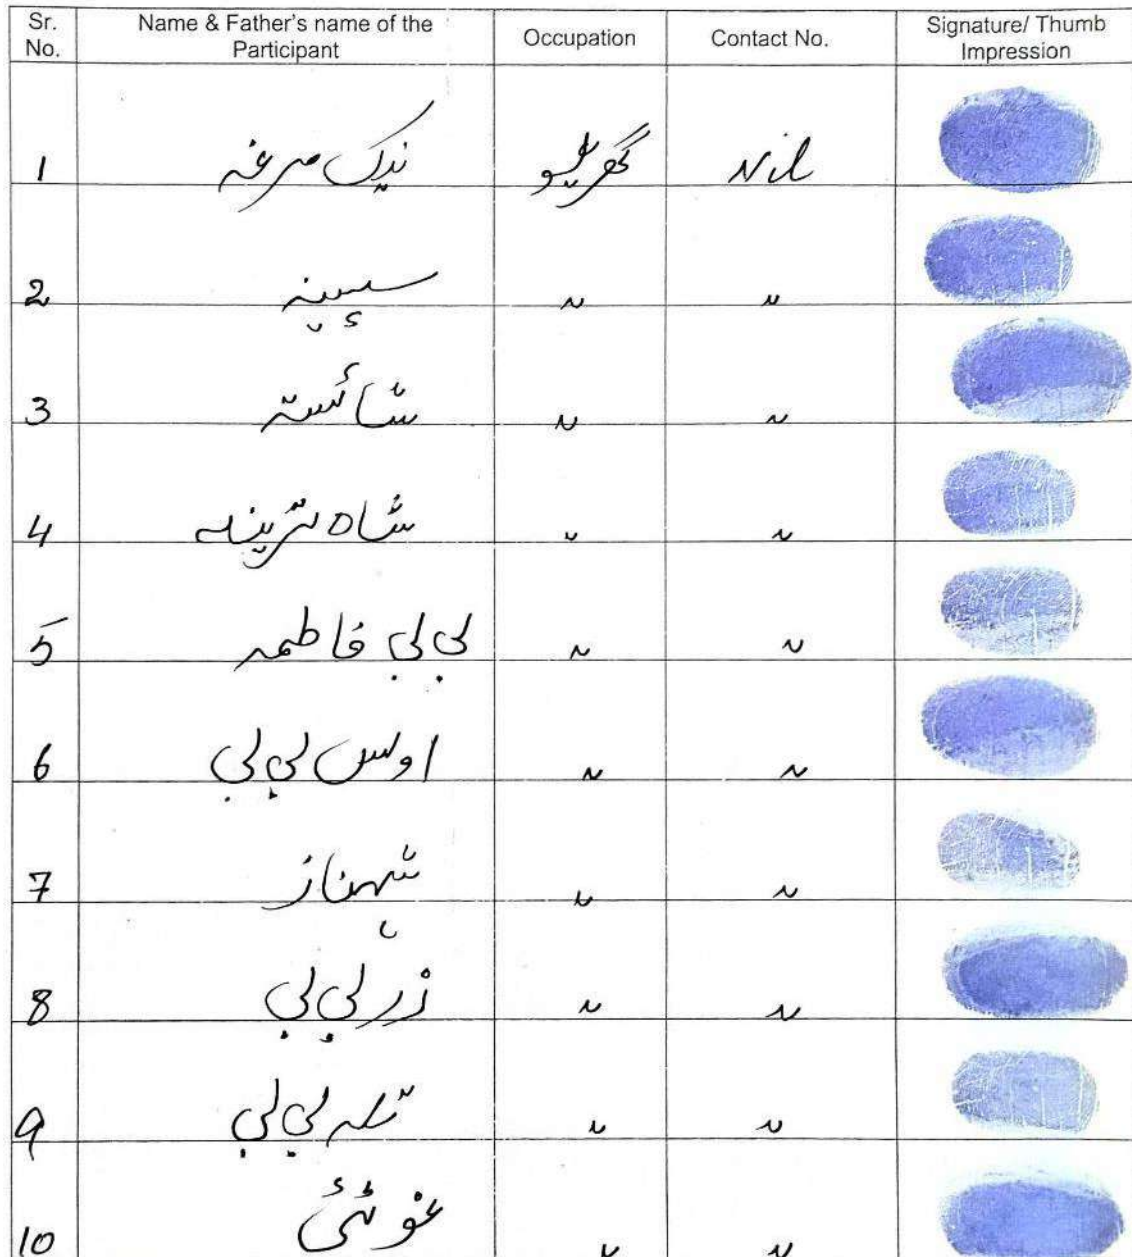 Sr. No. | Name & Father's name of the Participant | Occupation | Contact No. | Signature/ Thumb Impression
1 | نیک مرغہ | گھریلو | Nil
2 | سپینہ | 〃 | 〃
3 | شائستہ | 〃 | 〃
4 | 〃 | 〃
5 | بی بی فاطمہ | 〃 | 〃
6 | اوس بی بی | 〃 | 〃
7 | شہناز | 〃 | 〃
8 | زر بی بی | 〃 | 〃
9 | بی بی | 〃 | 〃
10 | غوٹئی | 〃 | 〃